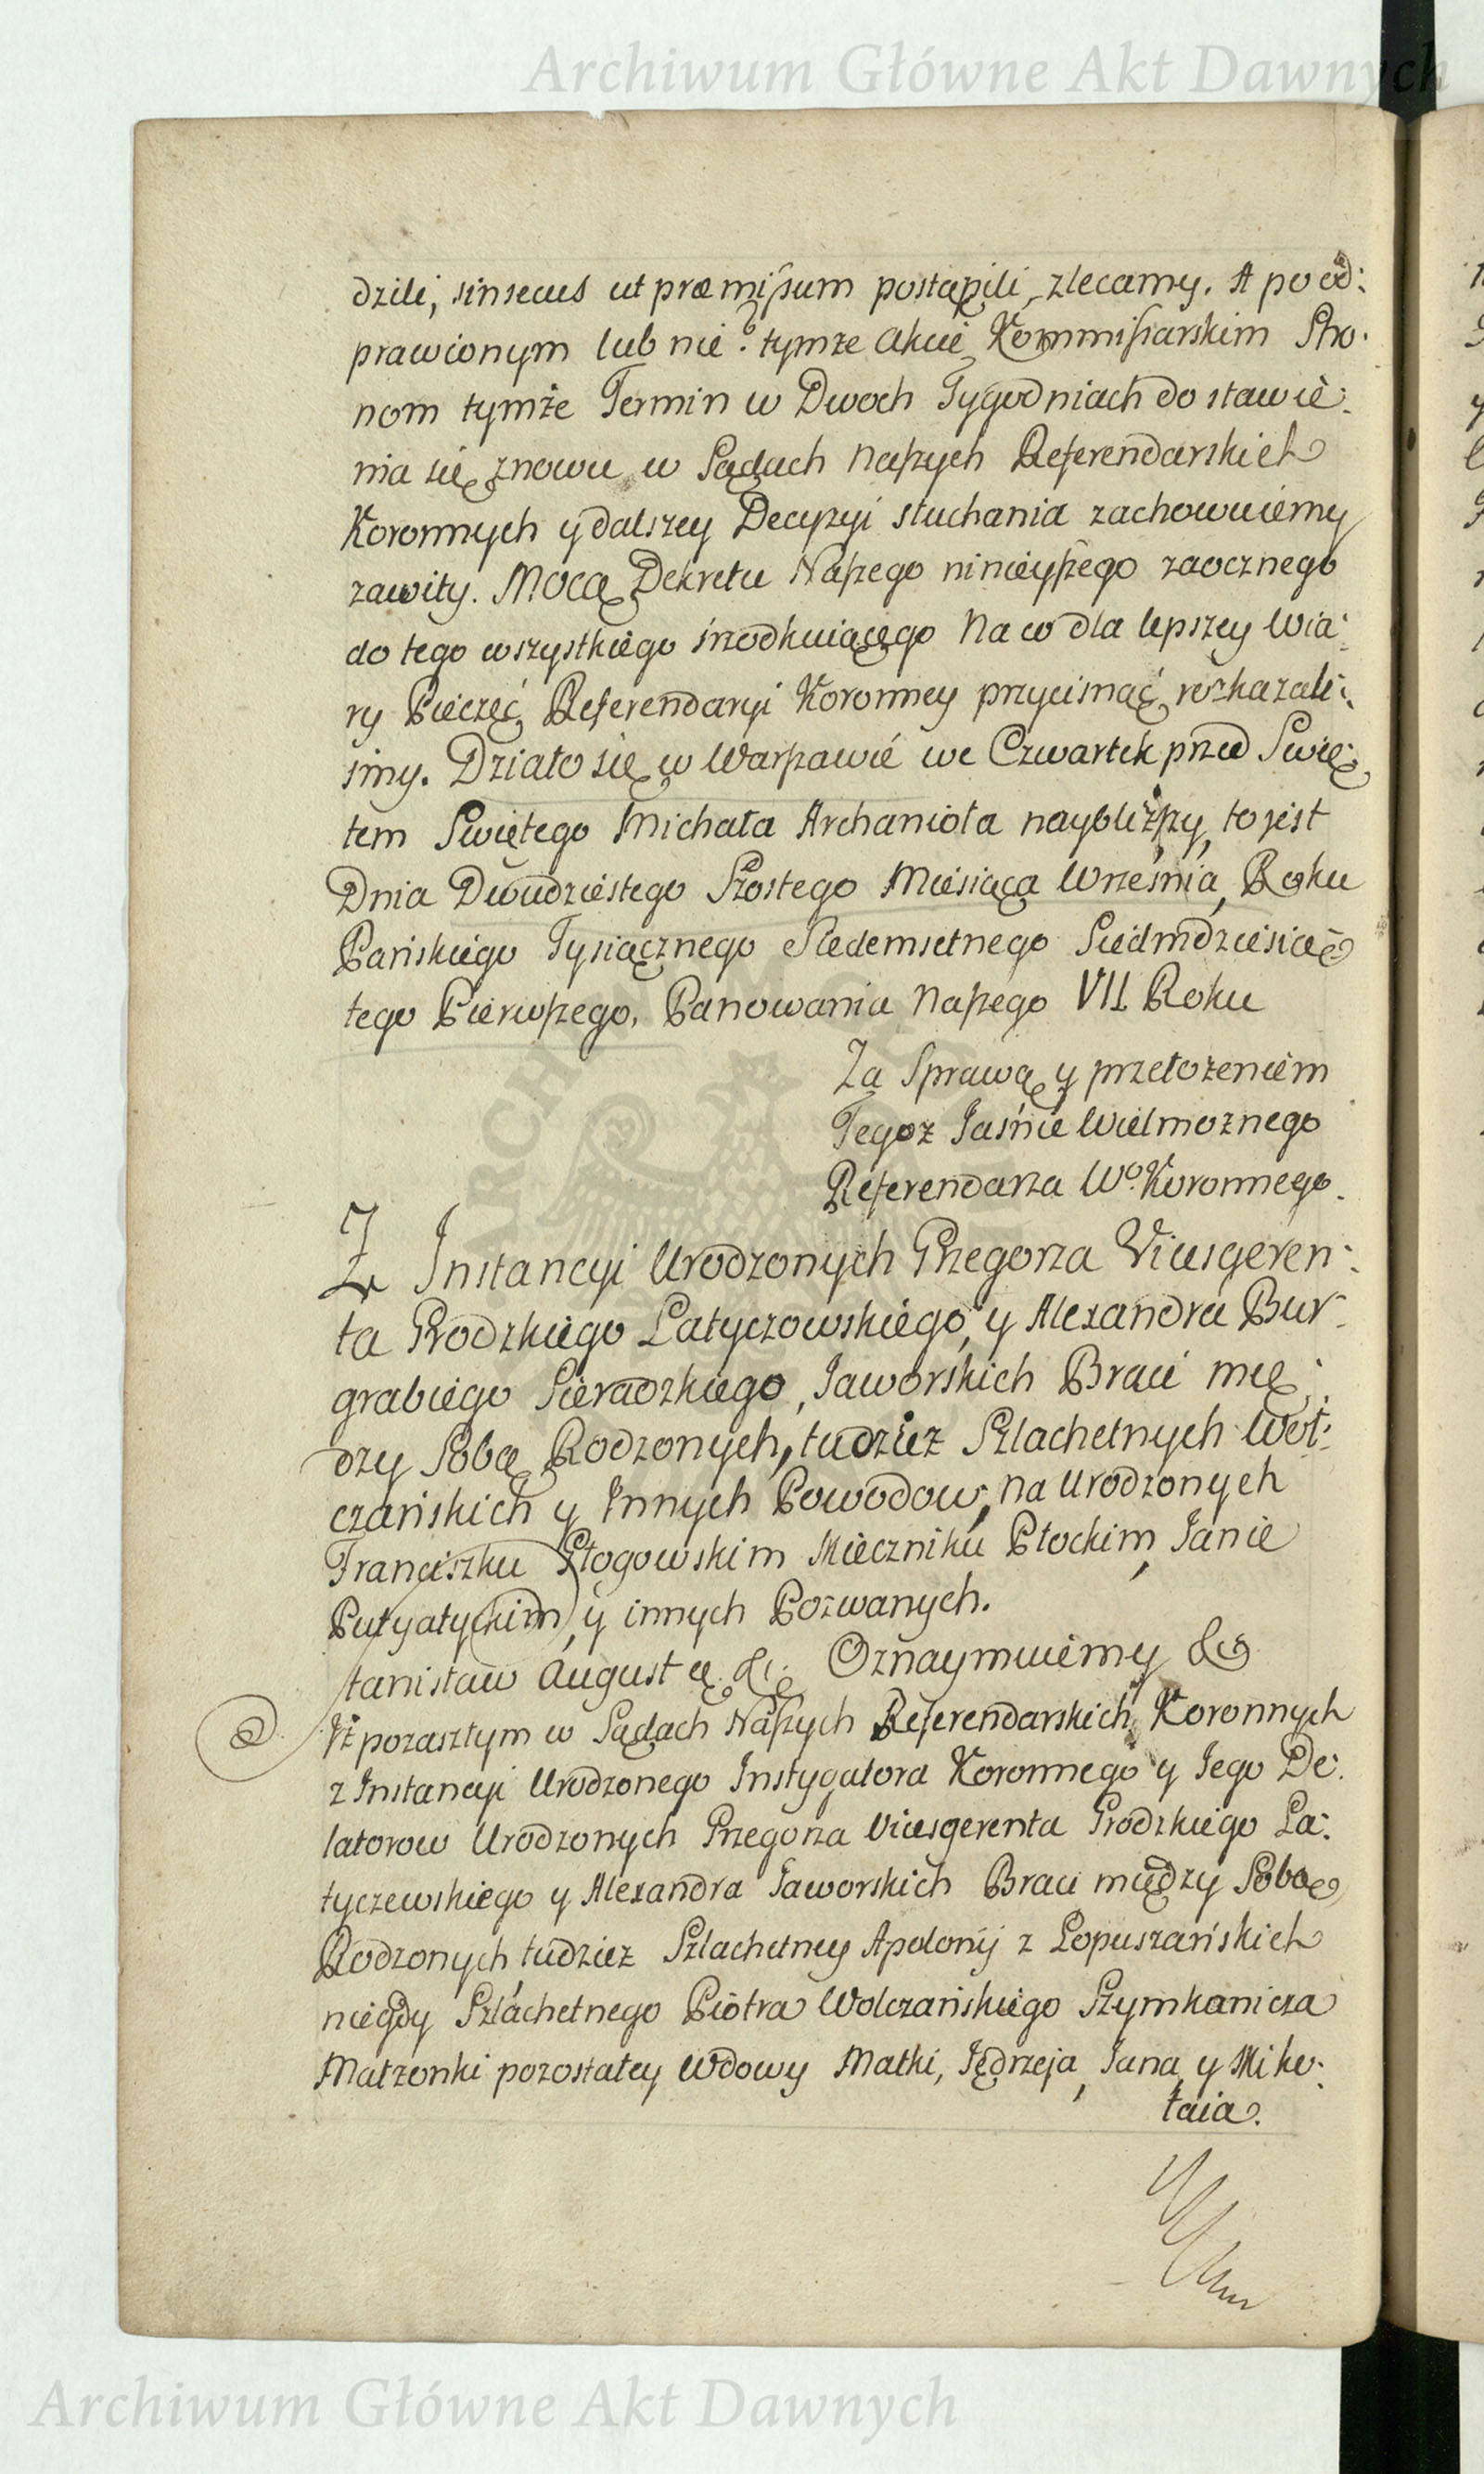 Archiwum Główne Akt Dawnych
dzili, sinsecus ut præmissum postąpili, zlecamy. A po od:
prawionym lub nie: tymże Akcie Kommissarskim Stro:
nom tymże Termin w Dwoch Tygodniach do stawie:
nia się znowu w Sądach Naszych Referendarskich
Koronnych y dalszey Decyzyi słuchania zachowuiemy
zawity. Mocą Dekretu Naszego ninieyszego zaocznego
do tego wszystkiego srzodkuiącego Na co dla lepszey Wia:
ry Pieczęć Referendaryi Koronney przycisnąć rozkazali:
smy. Działo się w Warszawie we Czwartek przed Swię:
tem Swiętego Michała Archanioła nayblizszy, to jest
Dnia Dwudziestego Szostego Miesiąca Września, Roku
Pańskiego Tysiącznego Siedemsetnego Siedmdziesią
tego Pierwszego, Panowania Naszego VII Roku
Za Sprawą y przełożeniem
Tegoż Jaśnie Wielmożnego
Referendarza Wo. Koronnego.
Z Instancyi Urodzonych Grzegorza Vicesgeren:
ta Grodzkiego Latyczowskiego, y Alexandra Bur:
grabiego Sieradzkiego, Jaworskich Braci mię:
dzy Sobą Rodzonych, tudziez Szlachetnych Woł:
czańskich y Innych Powodow, na Urodzonych
Franciszku Głogowskim Mieczniku Płockim, Janie
Putyatyckim, y innych Pozwanych.
Stanisław August etc. Oznaymuiemy &c
Iż pozaszłym w Sądach Naszych Referendarskich Koronnych
z Instancyi Urodzonego Instygatora Koronnego y Jego De:
latorow Urodzonych Grzegorza Vicesgerenta Grodzkiego La:
tyczewskiego y Alexandra Jaworskich Braci między Sobą
Rodzonych, tudziez Szlachetney Apolonij z Łopuszańskich
niegdy Szlachetnego Piotra Wolczańskiego Szymkanicza
Małżonki pozostałey Wdowy Matki, Jędrzeja, Jana y Miko:
łaia.
Archiwum Główne Akt Dawnych